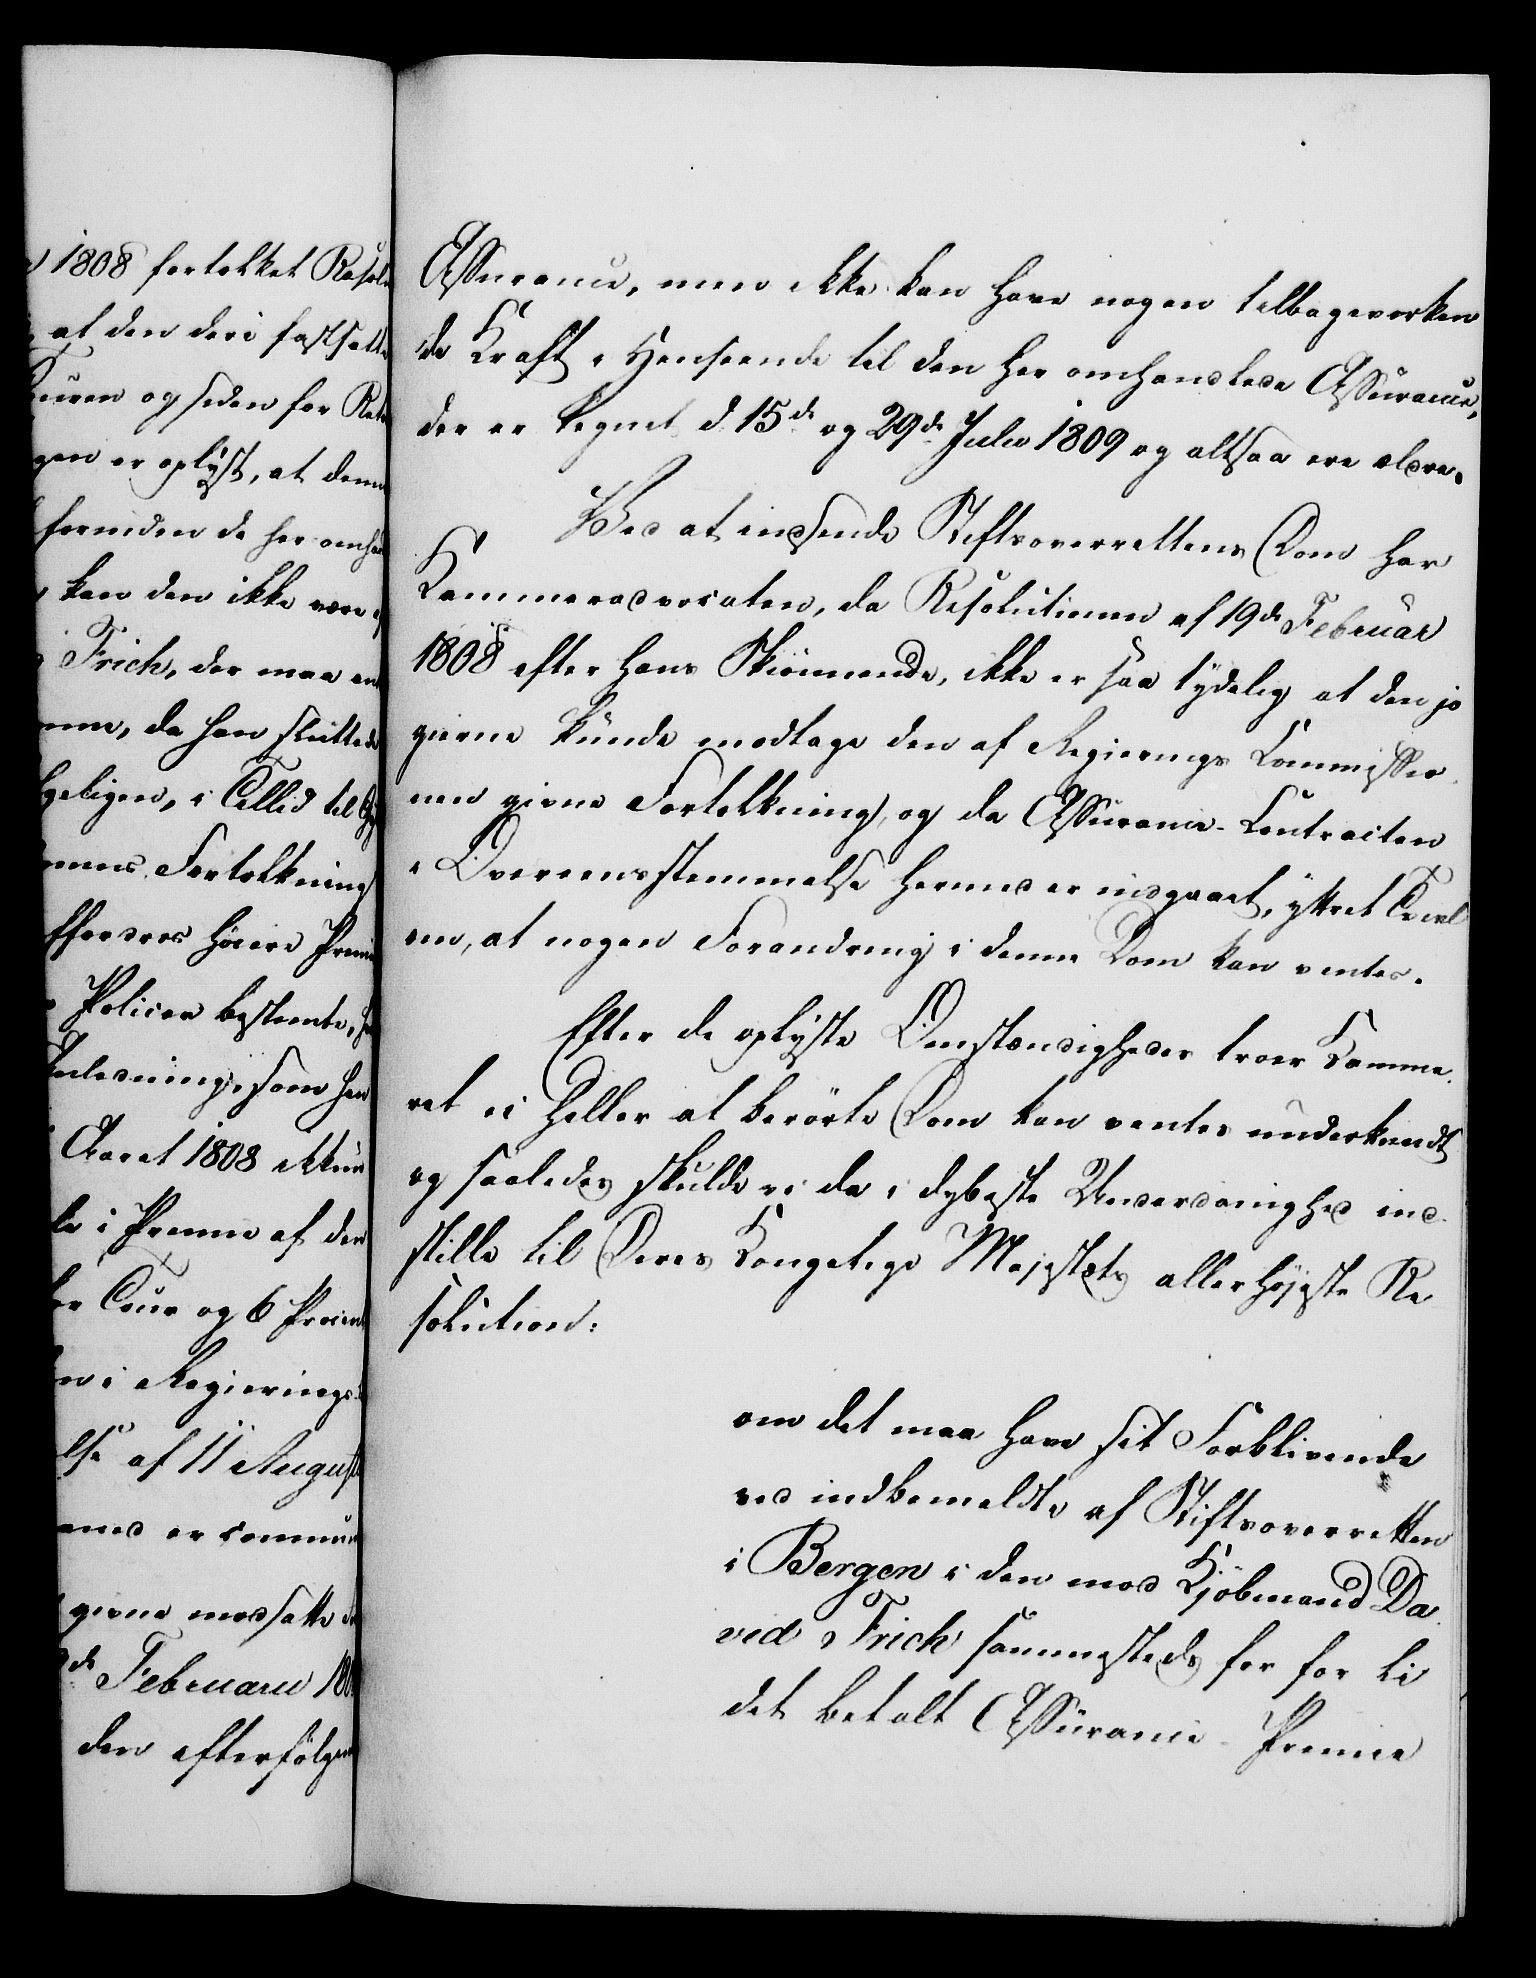 1808 fortolket Resolu
at den deri fastsatte
euren og siden for Rette
gen er oplyst, at denne
forinden de her omha
kan den ikke være
Frich, der maa an
nne, da han sluttede
geligen, i Tillid til
nens Fortolkning
fferdres høiere Premie
Policer bestemte,
Anledning, som han
Aaret 1808 ikkun
le i Premie af den
er Cour og 6 Procent
n i Regierings
lse af 11 August
med er commun
givne modsatte
de Februarii 180
den efterfølgen
Assurance, men ikke kan have nogen tilbagevirken
de Kraft i Henseende til den her omhandlede Assurance,
der er tegnet d 15de og 29de Julii 1809 og altsaa ere ældre.
Ved at indsende Stiftsoverrettens Dom har
Kammeradvocaten, da Resolutionen af 19de Februar
1808 efter hans Skiönnende, ikke er saa tydelig at den jo
gierne kunde modtage den af Regierings Commissio
nen givne Fortolkning, og da Assurance-Contracten
i Overeensstemmelse hermed er indgaaet, yttret Tvivl
om, at nogen Forandring i denne Dom kan ventes.
Efter de oplyste Omstændigheder troer Kamme
ret ei heller at berörte Dom kan ventes underkiendt
og saaledes skulde vi da i dybeste Underdanighed ind
stille til Deres Kongelige Majestæts allerhøjeste Re
solution:
om det maa have sit Forblivende
ved indbemeldte af Stiftsoverretten
i Bergen i den mod Kjöbmand Da
vid Frich sammesteds for for li
det betalt Assurance-Premie